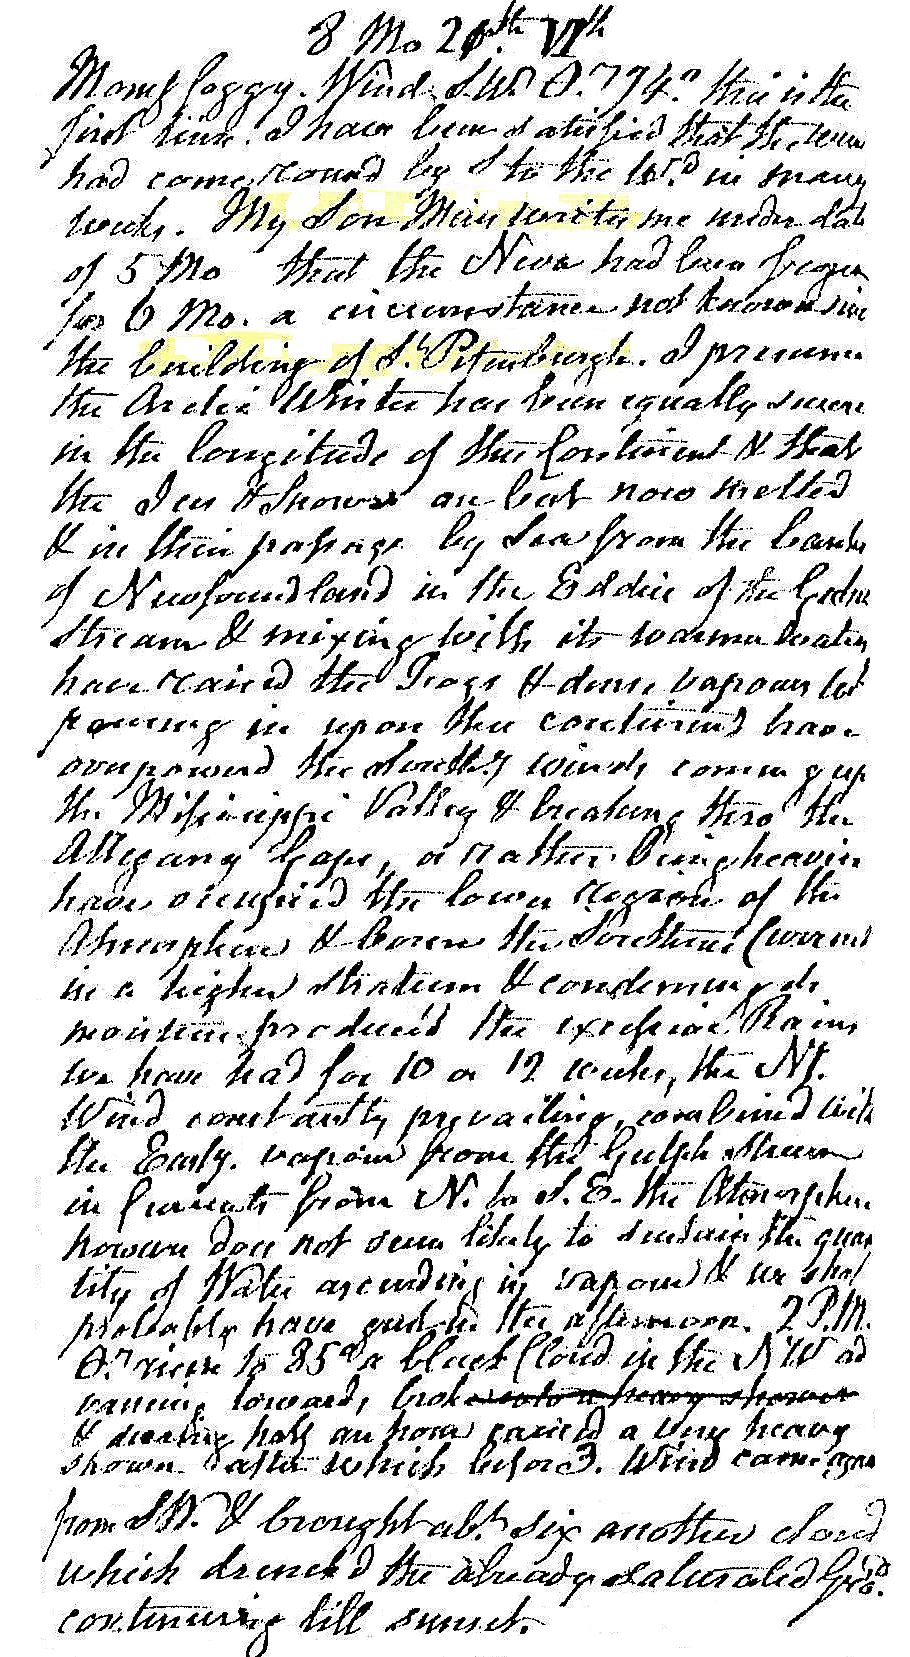 8 Mo 20th VIth
Morng foggy. Wind S.W. 74° this is the
first time I have been satisfied that the wind
had come round by S to the Wrd in many
weeks. My Son writes me under date
of 5 Mo that the Neva had been frozen
for 6 Mo. a circumstance not known since
the building of St. Petersburgh. I presume
the Arctic Winter has been equally severe
in the longitude of this Continent & that
the Ices & Snows are but now melted
& in their passage by Sea from the banks
of Newfoundland in the Eddie of the
Stream & mixing with its warmer waters
have raised the Fogs & dense vapours
pouring in upon this continent have
overpowered the Southy winds coming up
the Missisippi Valley & breaking thro the
Allegany Gaps, or rather being heavier
have occupied the lower region of the
Atmosphere & borne the Southern Current
in a higher stratum & condensing its
moisture produced the excessive Rains
we have had for 10 or 12 weeks, the
Wind constantly prevailing, combined with
the Easty. vapour from the Gulph Stream
in Currents from N. to S.E. the Atmosphere
however does not seem likely to sustain the quan
tity of Water ascending in vapour & we shal
probably have gust in the afternoon. 2 P.M.
risen to 85° a black Cloud in the NW ad
vancing towards, broke into a heavy shower
& during half an hour a very heavy
shower after which before 3. Wind came again
from SW. & brought abt. six another cloud
which drenched the already saturated Grd.
continuing till sunset.